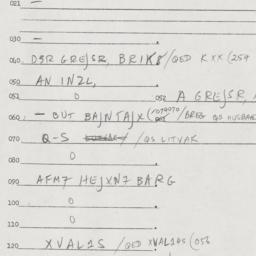 021 —
030 —
040 DSR GREJSR, BRIKS/QED KXX (254
050 AN INZL,
052 0 052 A GREJSR,
060 — OUT BAJNTAJX (070970 / BREG QS HUSBAN
070 Q-S / QS LITVAK
080 0
090 AFM7 HEJXN7 BARG
100 0
110 0
120 XVAL1S /QED XVAL1QS (056